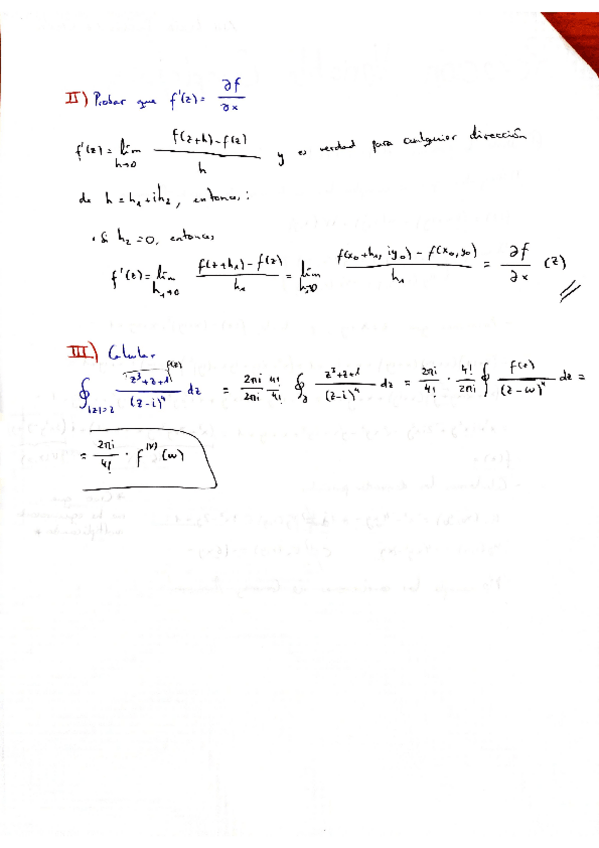 II) Probar que f'(z) = ∂f/∂x
f'(z) = lim_{h→0} (f(z+h) - f(z))/h y es verdad para cualquier dirección
de h = h₁ + ih₂, entonces:
• Si h₂ = 0, entonces
f'(z) = lim_{h₁→0} (f(z+h₁) - f(z))/h₁ = lim_{h→0} (f(x₀+h₁, iy₀) - f(x₀, y₀))/h₁ = ∂f/∂x (z) //
III) Calcular
f(z)
∮_{|z|=2} (z³+z+1)/(z-i)⁴ dz = 2πi/2πi 4!/4! ∮_γ (z³+z+1)/(z-i)⁴ dz = 2πi/4! · 4!/2πi ∮ f(z)/(z-w)⁴ dz =
= 2πi/4! · f^{(IV)}(w)